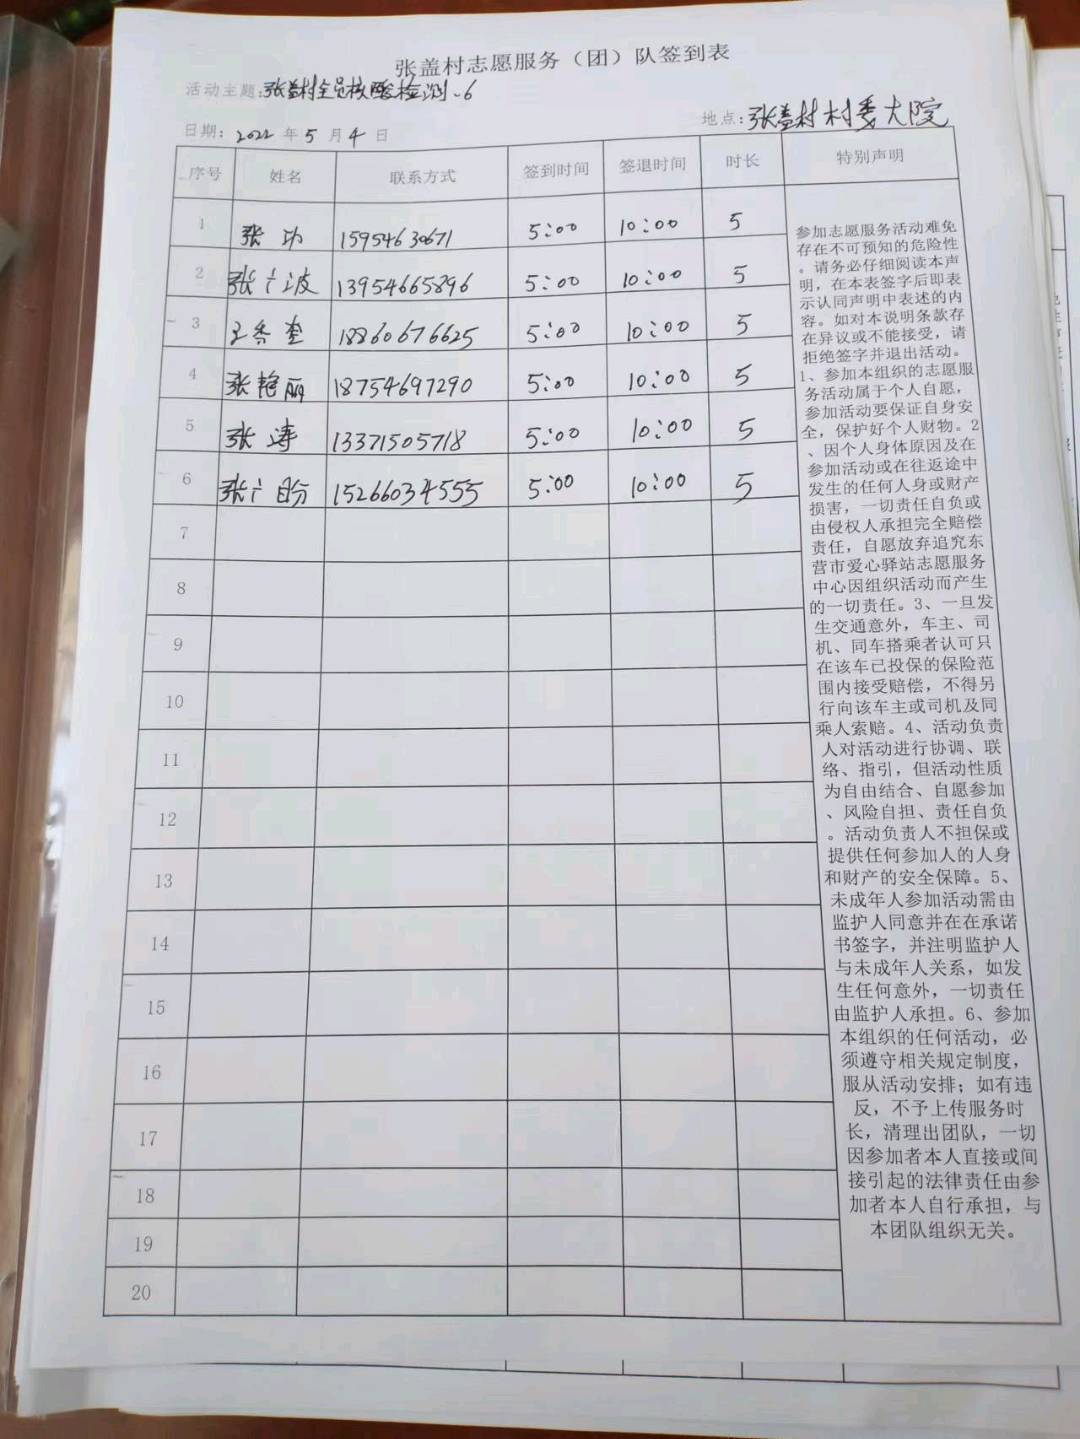 张盖村志愿服务（团）队签到表
活动主题：张盖村全员核酸检测.6
地点：张盖村村委大院
日期：2022年5月4日
序号 姓名 联系方式 签到时间 签退时间 时长 特别声明
1 张功 15954630671 5:00 10:00 5
2 张广波 13954665896 5:00 10:00 5
3 18860676625 5:00 10:00 5
4 张艳丽 18754697290 5:00 10:00 5
5 张涛 13371505718 5:00 10:00 5
6 张广 15266034555 5:00 10:00 5
7
8
9
10
11
12
13
14
15
16
17
18
19
20
参加志愿服务活动难免
存在不可预知的危险性
。请务必仔细阅读本声
明，在本表签字后即表
示认同声明中表述的内
容。如对本说明条款存
在异议或不能接受，请
拒绝签字并退出活动。
1、参加本组织的志愿服
务活动属于个人自愿，
参加活动要保证自身安
全，保护好个人财物。2
、因个人身体原因及在
参加活动或在往返途中
发生的任何人身或财产
损害，一切责任自负或
由侵权人承担完全赔偿
责任，自愿放弃追究东
营市爱心驿站志愿服务
中心因组织活动而产生
的一切责任。3、一旦发
生交通意外，车主、司
机、同车搭乘者认可只
在该车已投保的保险范
围内接受赔偿，不得另
行向该车主或司机及同
乘人索赔。4、活动负责
人对活动进行协调、联
络、指引，但活动性质
为自由结合、自愿参加
、风险自担、责任自负
。活动负责人不担保或
提供任何参加人的人身
和财产的安全保障。5、
未成年人参加活动需由
监护人同意并在在承诺
书签字，并注明监护人
与未成年人关系，如发
生任何意外，一切责任
由监护人承担。6、参加
本组织的任何活动，必
须遵守相关规定制度，
服从活动安排；如有违
反，不予上传服务时
长，清理出团队，一切
因参加者本人直接或间
接引起的法律责任由参
加者本人自行承担，与
本团队组织无关。